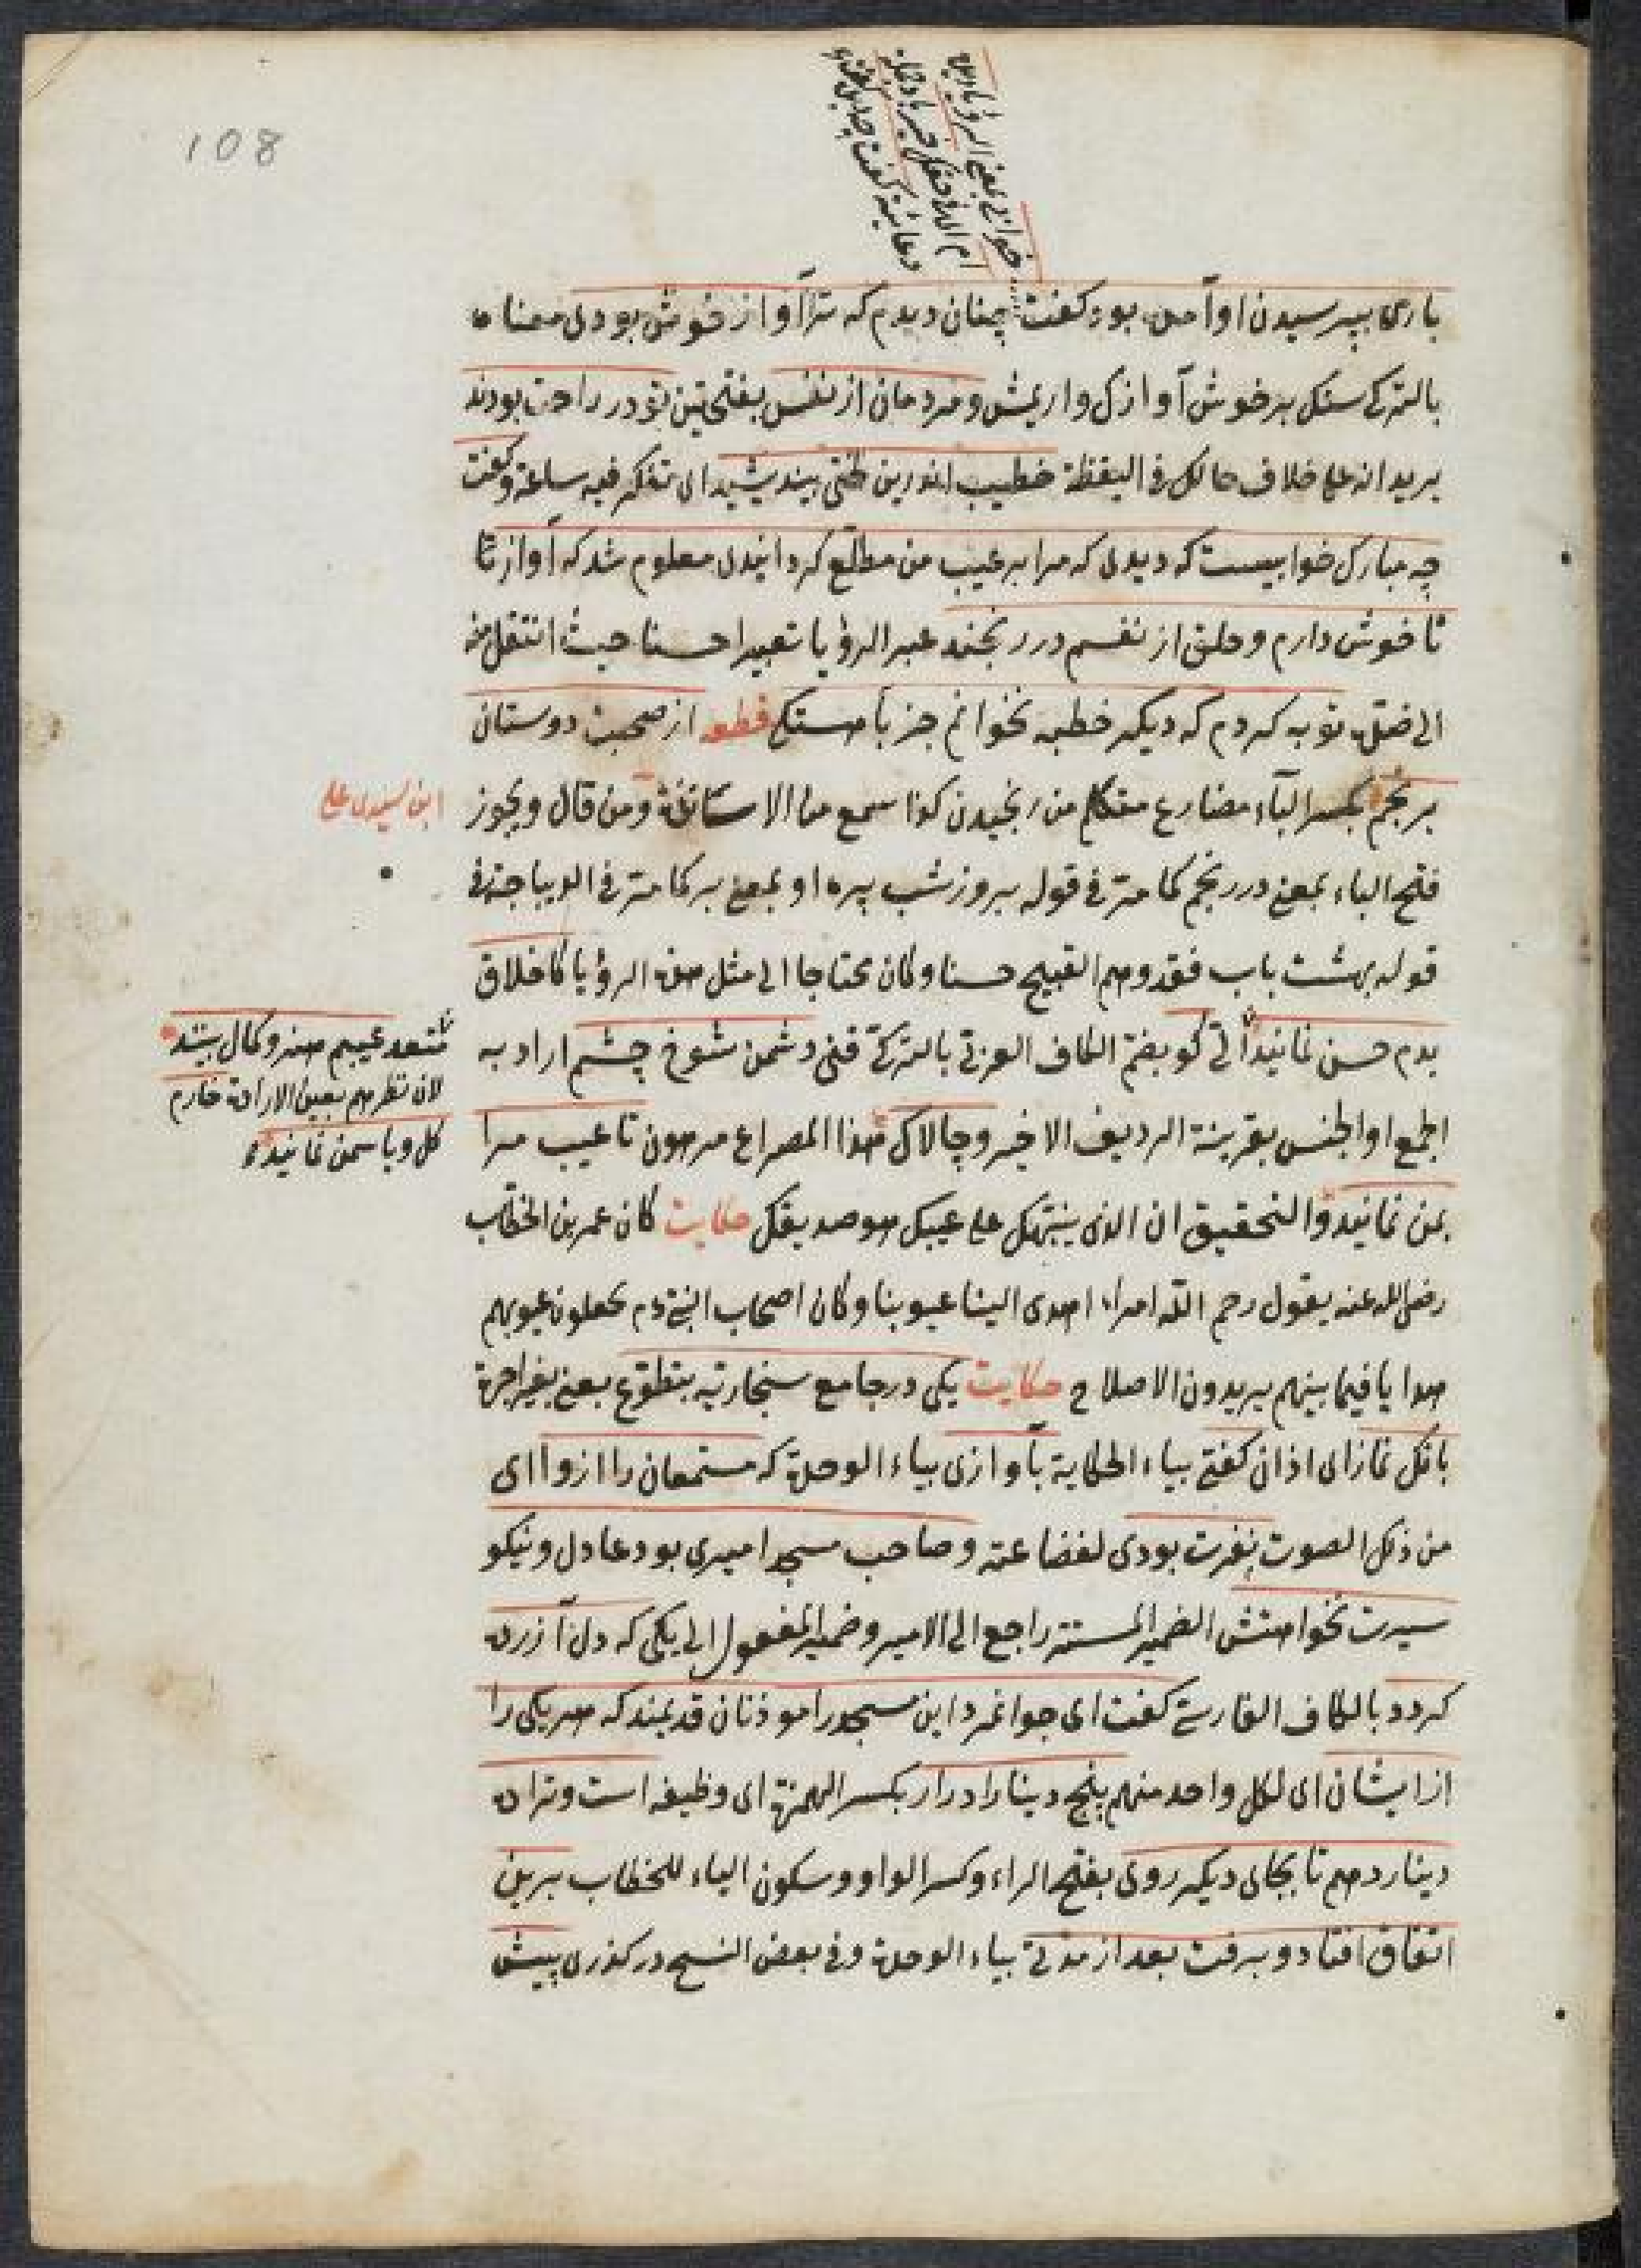 108
باری بپرسیدن او آمده بود گفت چنان دیدم که ترا آواز خوش بودی معناه
بالترکی سنک بر خوش آوازک وار یمش و مردمان از نفس بفتحتین تو در راحت بودند
یرید انه علی خلاف حالک فی الیقظة خطیب اندرین لختی بیندیشید ای تفکر فیه ساعة و گفت
چه مبارک خوابیست که دیدی که مرا بر عیب من مطلع کردانیدی معلوم شد که آواز نا
نا خوش دارم و خلق از نفسم در رنجند عبر الرؤیا تعبیرا حسنا حیث انتقل منه
الی توبه کردم که دیکر خطبه نخوانم جز بآهستکی قطعه از صحبت دوستان
برنجم بکسر الباء مضارع متکلم من رنجیدن کذا سمع من الاساتذة ومن قال ویجوز
ابن سیدی علی
فتح الباء بمعنی در رنجم کما مر فی قوله بروز شب پره او بمعنی بر کما مر فی الدیباجة فی
قوله بهشت باب فقد وهم القبیح حسنا وکان محتاجا الی مثل هذه الرؤیا کاخلاق
بدم حسن نمایند کو بضم الکاف العربی بالترکی قنی دشمن شوخ چشم اراد به
عیبم هنر و کمال بیند
لان نظرهم بعین الارادة خارم
کل و یاسمن نمایند
الجمع او الجنس بقرینة الردیف الاخیر و چالاک هذا المصراع مرهون تا عیب مرا
بمن نمایند والتحقیق ان الذی ینبهک علی عیبک هو صدیقک حکایت کان عمر بن الخطاب
رضی الله عنه یقول رحم الله امراء اهدی الینا عیوبنا وکان اصحاب النبی عم یجعلون عیوبهم
هدایا فیما بینهم یریدون الاصلاح حکایت یکی در جامع سنجاریه بتطوع یعنی بغیر اجرة
بانک نماز ای اذان کفتی بیاء الحکایة بآوازی بیاء الوحدة که مستمعان را ازو ای
من ذلک الصوت نفرت بودی لفظاعته و صاحب مسجد امیری بود عادل و نیکو
سیرت نخواستش الضمیر المستتر راجع الی الامیر و ضمیر المفعول الی یکی که دل آزرده
کردد بالکاف الفارسی کفت ای جوانمرد این مسجد را موذنان قدیمند که هر یکی را
از ایشان ای لکل واحد منهم پنج دینار ادرار بکسر الهمزة ای وظیفه است و ترا ده
دینار دهم تا بجای دیکر روی بفتح الراء وکسر الواو وسکون الیاء للخطاب برین
اتفاق افتاد و برفت بعد از مدتی بیاء الوحدة وفی بعض النسخ در کذری پیش